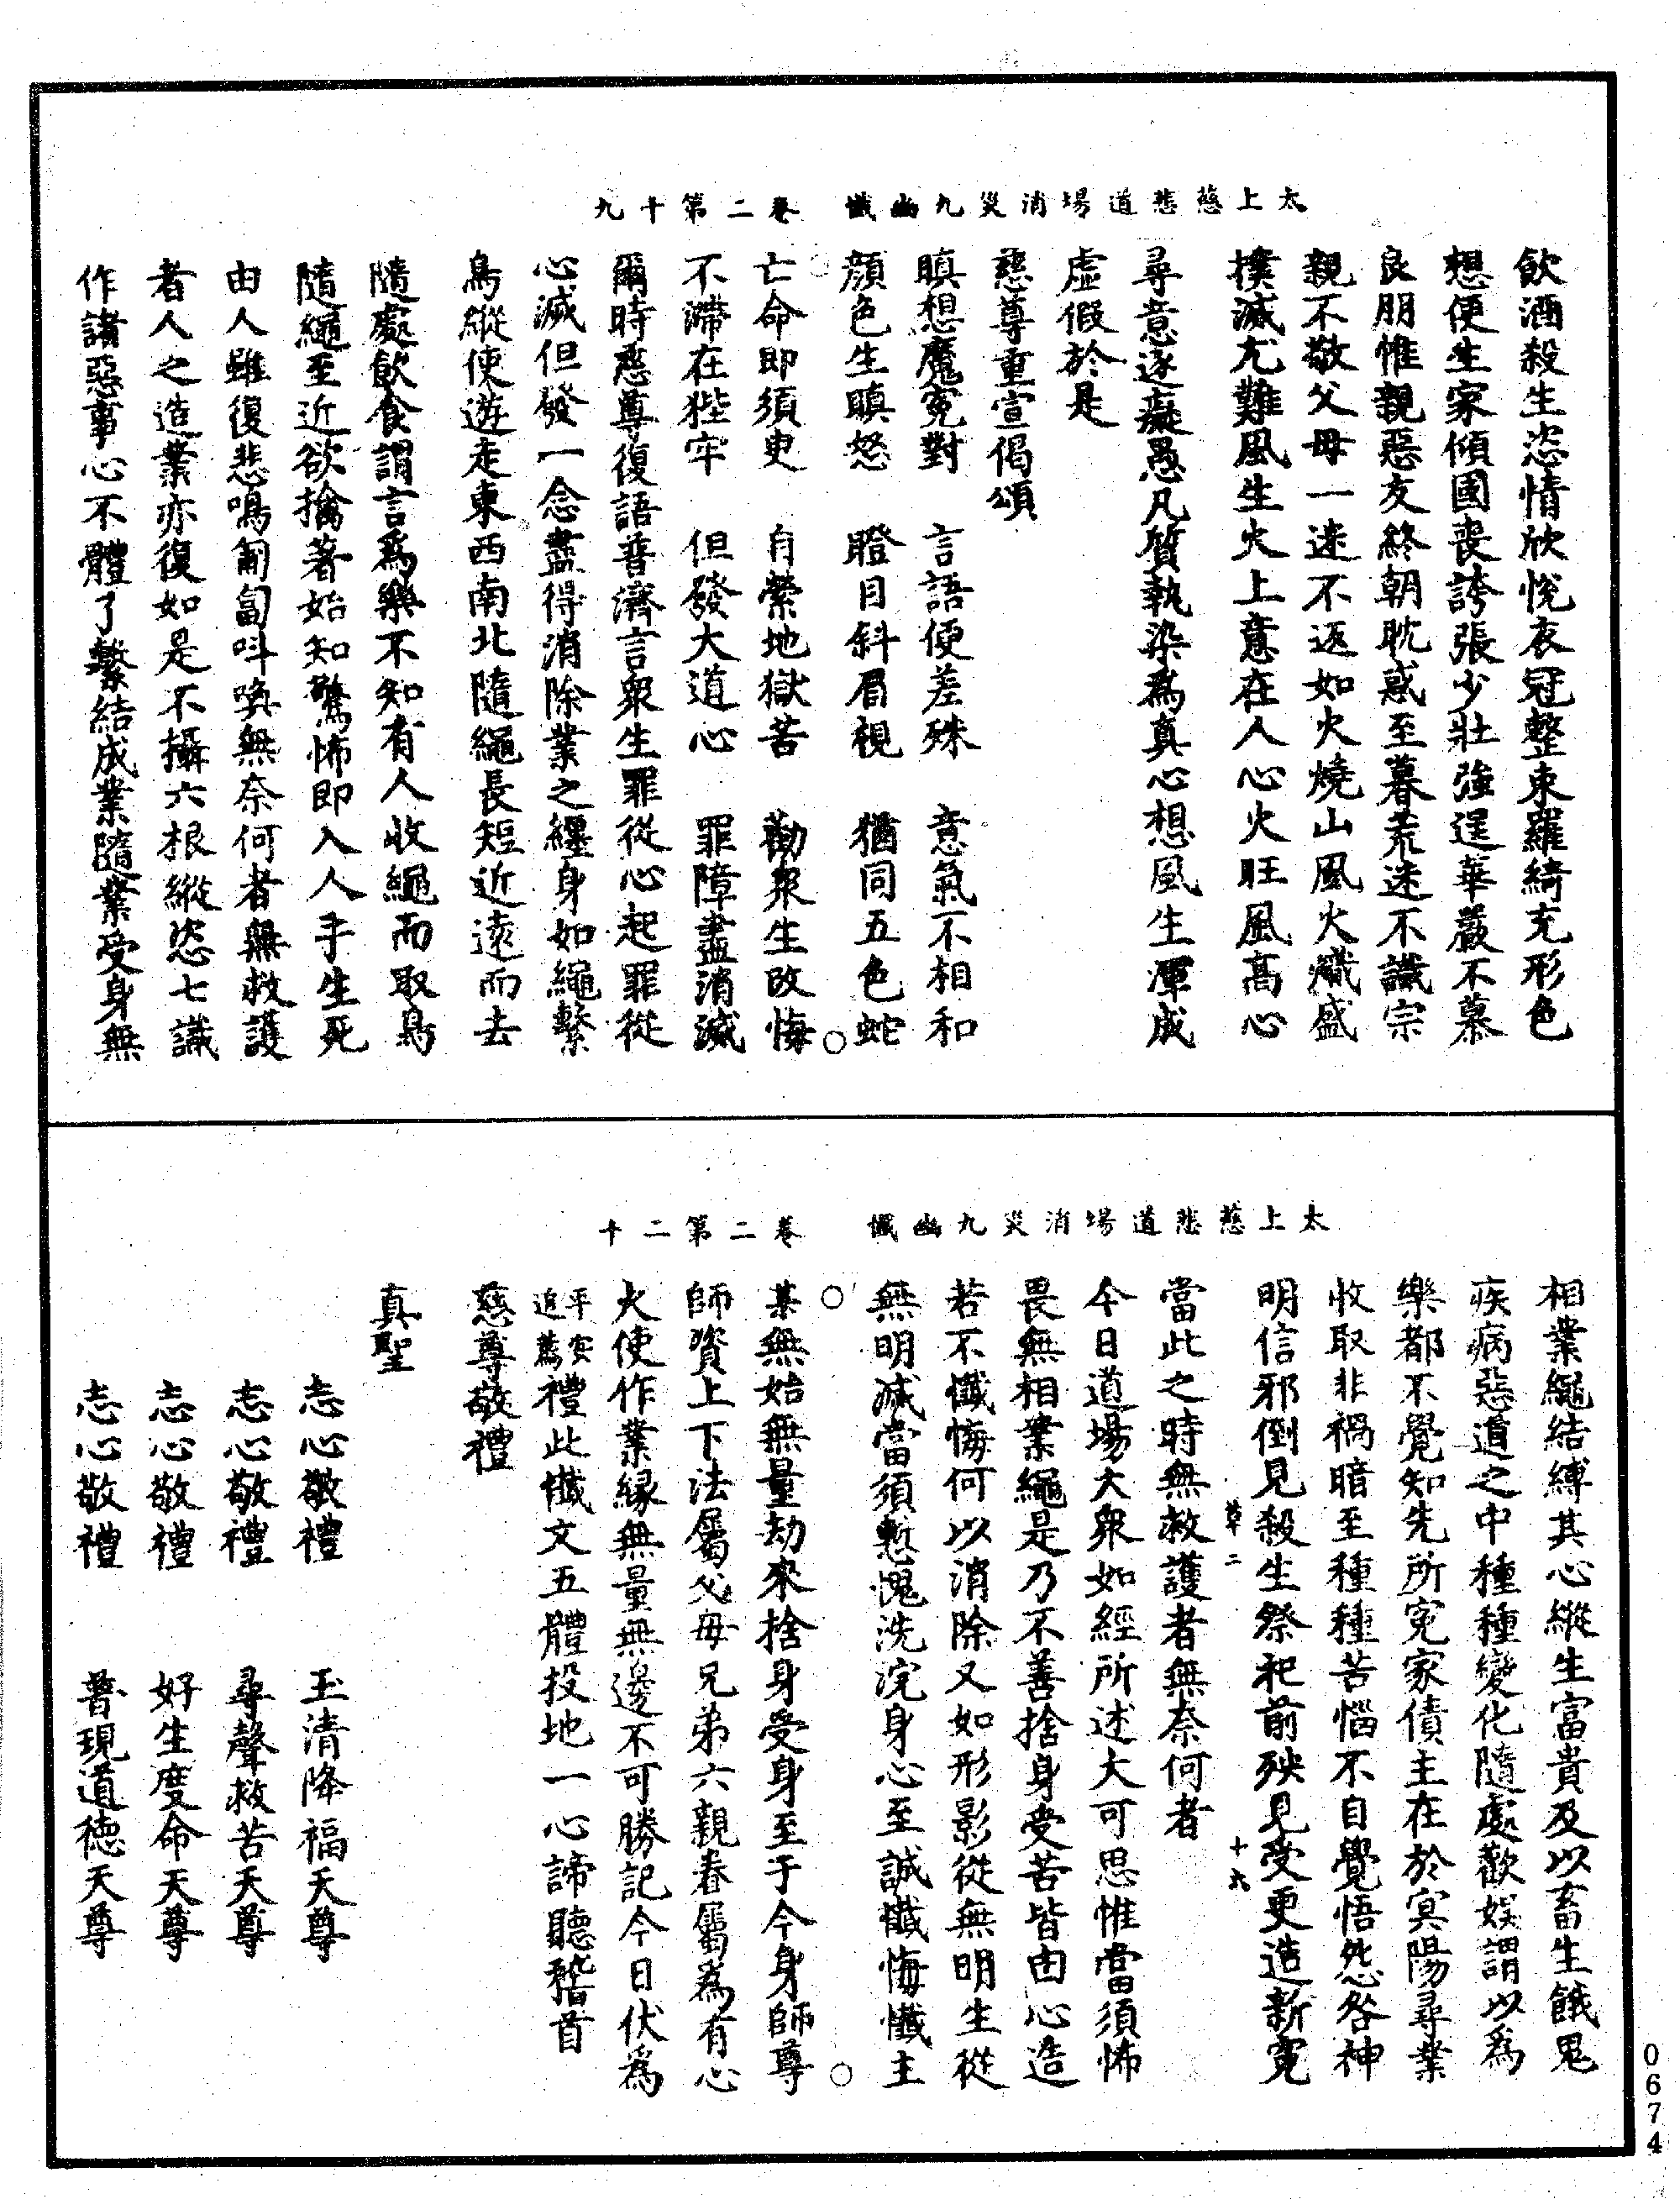 太上慈悲道場消災九幽懺　卷二第十九
飲酒殺生恣情欣悅衣冠整束羅綺充形色
想便生家傾國喪誇張少壯強逞華嚴不慕
良朋惟親惡友終朝耽惑至暮荒迷不識宗
親不敬父母一迷不返如火燒山風火熾盛
撲滅尤難風生火上意在人心火旺風高心
尋意逐癡愚凡質執染為真心想風生渾成
虛假於是
慈尊重宣偈頌
瞋想魔冤對　言語便差殊　意氣不相和
顏色生瞋怒　瞪目斜眉視　猶同五色蛇
亡命即須臾　自縈地獄苦　勸衆生改悔
不滯在狴牢　但發大道心　罪障盡消滅
爾時慈尊復語普濟言衆生罪從心起罪從
心滅但發一念盡得消除業之纏身如繩繫
鳥縱使遊走東西南北隨繩長短近遠而去
隨處飲食謂言爲樂不知有人收繩而取鳥
隨繩至近欲擒著始知驚怖即入人手生死
由人雖復悲鳴匍匐呌喚無奈何者無救護
者人之造業亦復如是不攝六根縱恣七識
作諸惡事心不體了繫結成業隨業受身無
太上慈悲道場消災九幽懺　卷二第二十
相業繩結縛其心縱生富貴及以畜生餓鬼
疾病惡道之中種種變化隨處歡娛謂以爲
樂都不覺知先所冤家債主在於冥陽尋業
收取非禍暗至種種苦惱不自覺悟怨咎神
明信邪倒見殺生祭祀前殃見受更造新冤
二　十六
當此之時無救護者無奈何者
今日道場大衆如經所述大可思惟當須怖
畏無相業繩是乃不善捨身受苦皆由心造
若不懺悔何以消除又如形影從無明生從
無明滅當須慙愧洗浣身心至誠懺悔懺主
某無始無量劫來捨身受身至于今身師尊
師資上下法屬父母兄弟六親眷屬為有心
火使作業緣無量無邊不可勝記今日伏爲
平安追薦禮此懺文五體投地一心諦聽稽首
慈尊敬禮
真聖
志心敬禮　玉清降福天尊
志心敬禮　尋聲救苦天尊
志心敬禮　好生度命天尊
志心敬禮　普現道德天尊
0674